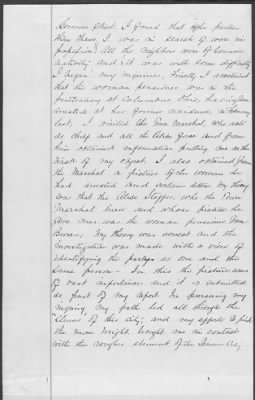 Street, I found that other parties
than those I was in search of were in
possession. All the neighbors were of German
nativity and it was with some difficulty
I began my inquiries. Finally I ascertained
that the woman pensioner, was in the
Penitentiary at Columbus Ohio, having been
arrested at her former residence in
last. I visited the Town Marshal, who acts
as chief and all the Police force and from
him obtained information putting me on the
track of my object. I also obtained from
the Marshal a picture of the woman he
had arrested and certain letters. My theory
was that the Alice Stoffer, who the Town
Marshal knew and whose picture he
gave me was the woman pensioner
My theory was correct and the
investigation was made with a view of
identifying the parties as one and the
same person. In this the picture was
of vast importance and it is submitted
as part of my report. In pursuing my
inquiry my path led all through the
"Slums" of this City; and my efforts to find
the man Wright, brought me in contact
with the rougher element of the